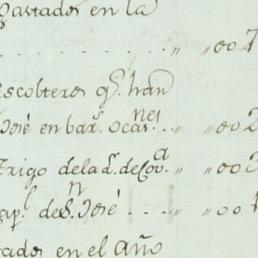 gastados en la
. . . . . . . . . . „ „ 007
escolteros q.e han
José en bar.s ocas.nes . . „ „ 002
Trigo de la d.ha de Cov.a „ „ 003
cap.l de S.n José . . . . „ „ 001
gados en el año